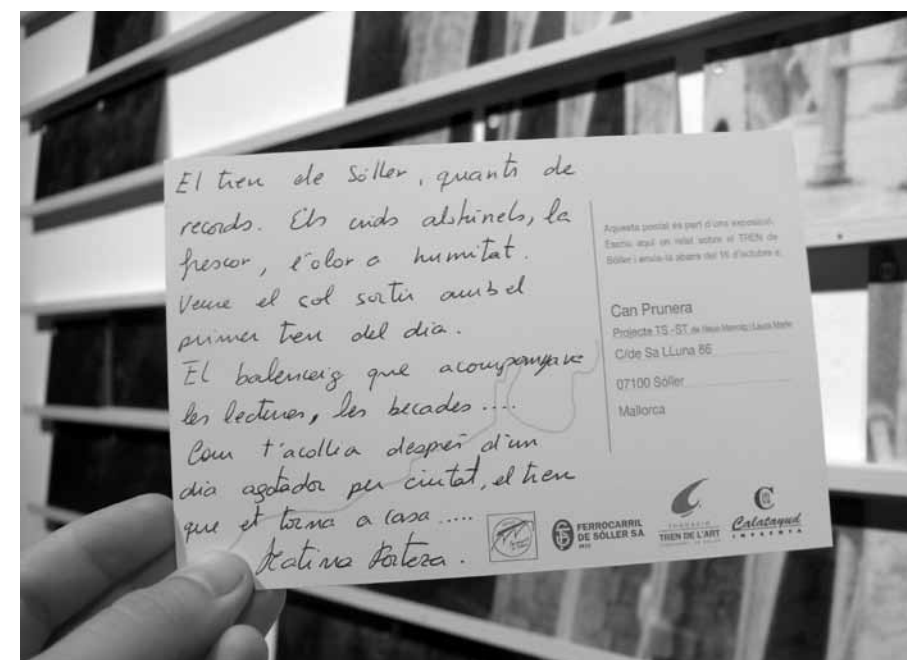 El tren de Sóller, quants de
records. Els crits als túnels, la
frescor, l'olor a humitat.
Veure el sol sortir amb el
primer tren del dia.
El balanceig que acompanyava
les lectures, les becades....
Com t'acollia després d'un
dia agotador per ciutat, el tren
que et torna a casa.....
Aquesta postal és part d'una exposició.
Escriu aquí un relat sobre el TREN de
Sóller i envia-la abans del 16 d'octubre a:
Can Prunera
Projecte TS-ST de
C/de Sa LLuna 86
07100 Sóller
Mallorca
FERROCARRIL
DE SÓLLER SA
1912
FUNDACIÓ
TREN DE L'ART
Calatayud
IMPREMTA